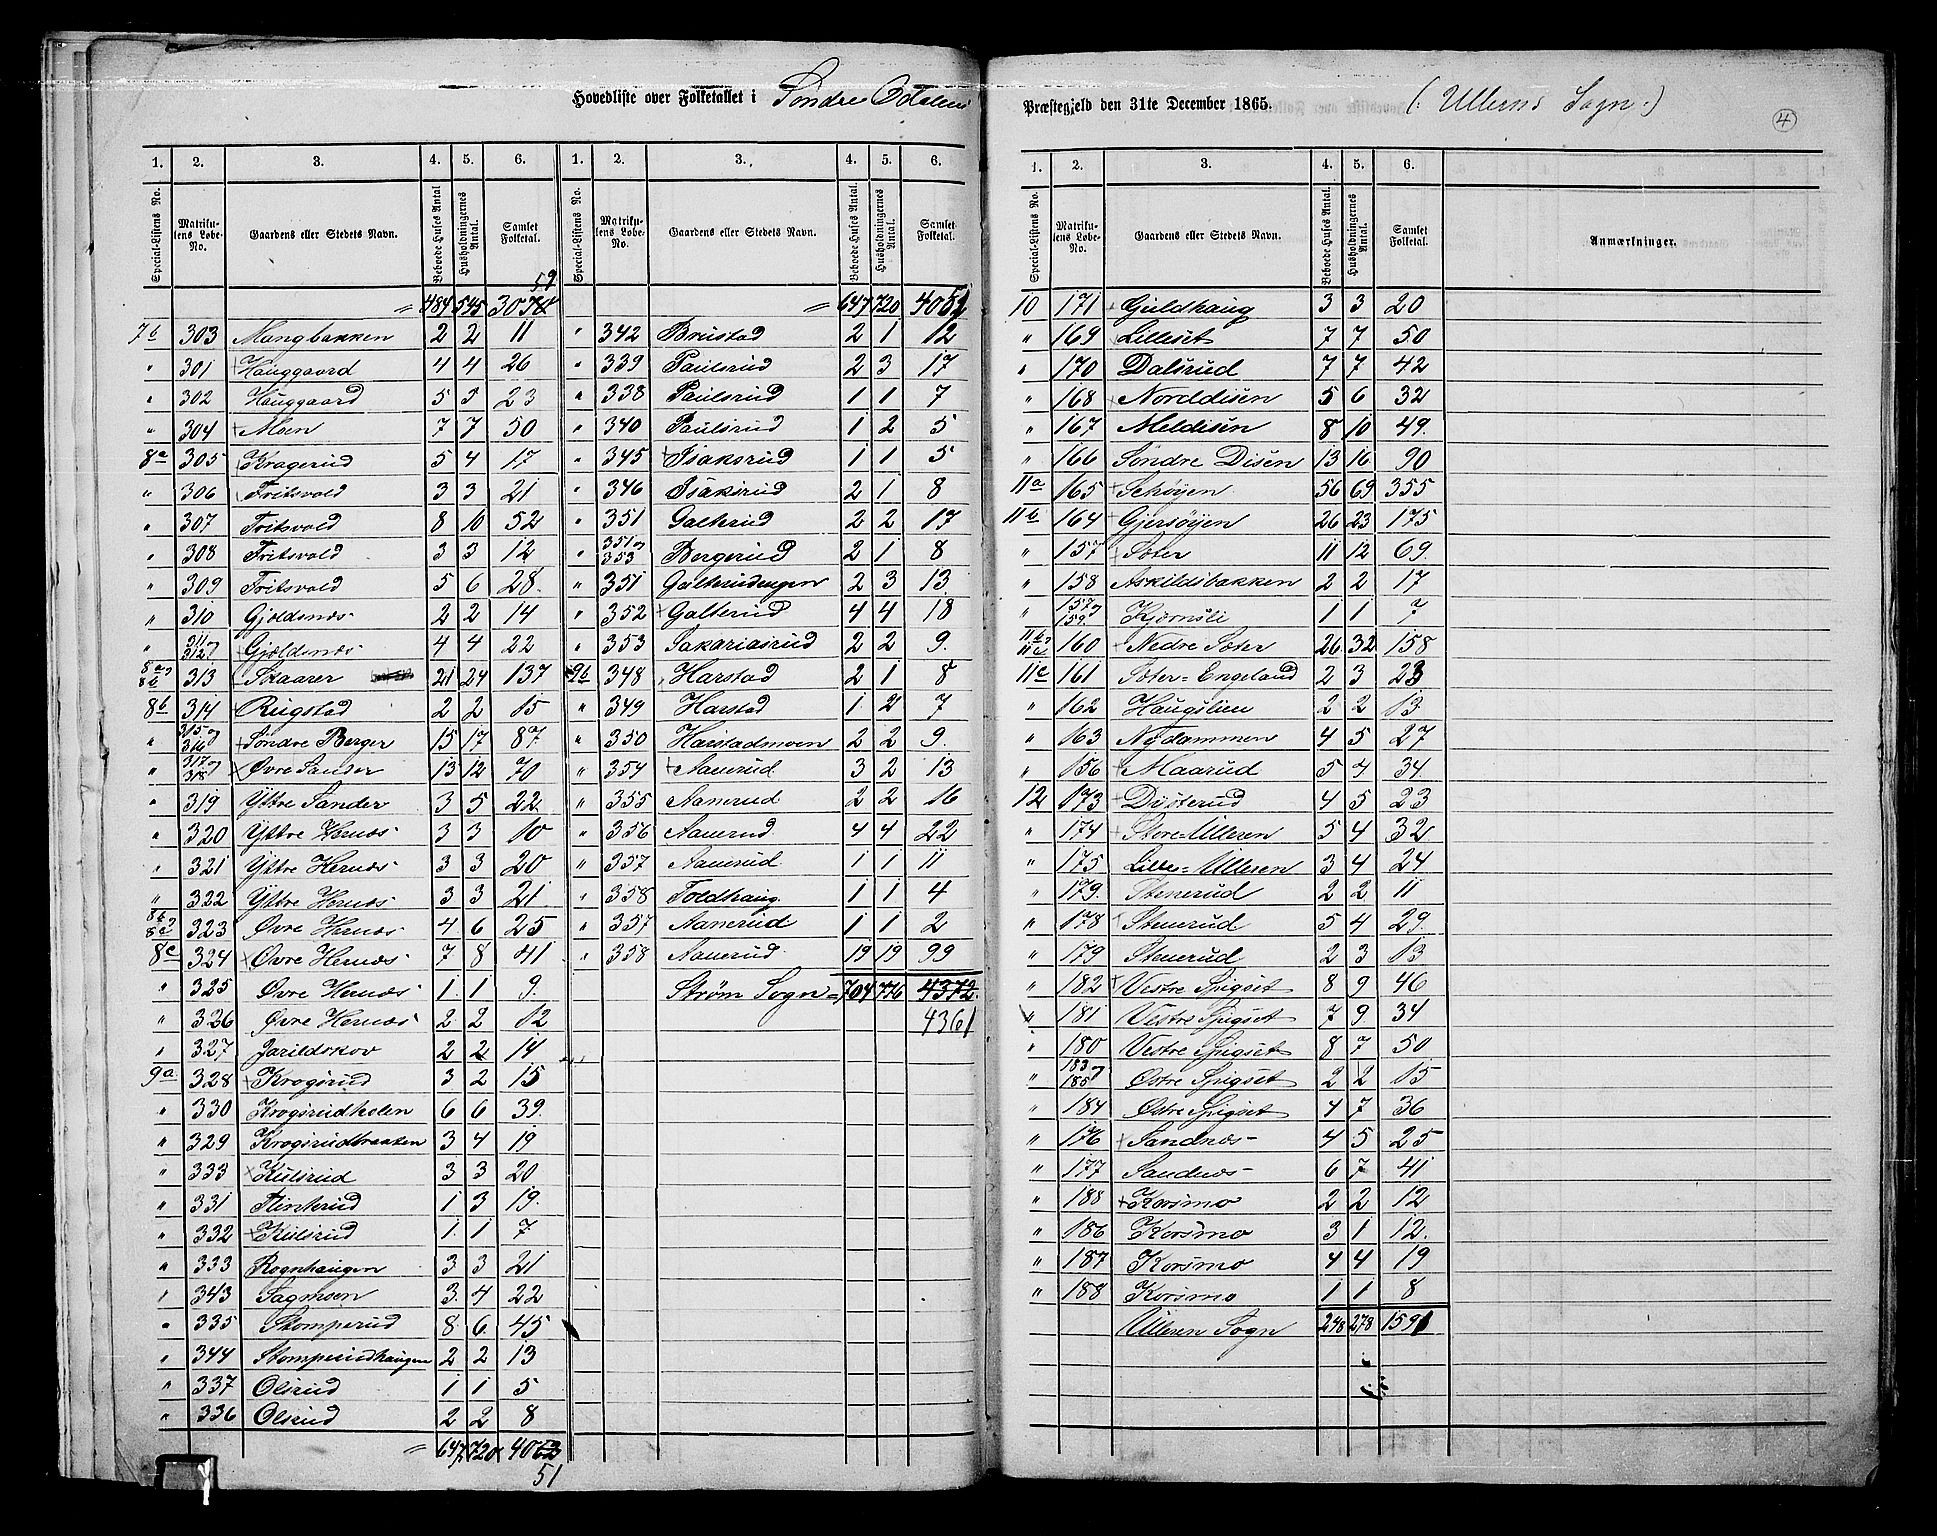 Hovedliste over Folketallet i Søndre Odalens
Præstegjeld den 31te December 1865. (: Ullerns Sogn :)
4
1. 2. 3. 4. 5. 6. 1. 2. 3. 4. 5. 6.
Special-Listens No. Matrikulens Løbe-No. Gaardens eller Stedets Navn. Beboede Huses Antal Husholdningernes Antal. Samlet Folketal. Special-Listens No. Matrikulens Løbe-No. Gaardens eller Stedets Navn. Beboede Huses Antal. Husholdningernes Antal. Samlet Folketal.
59
= 484 545 3070 = 647 720 4051
7b 303 Mangbakken 2 2 11 " 342 Brustad 2 1 12
" 301 Hauggaard 4 4 26 " 339 Paulsrud 2 3 17
" 302 Hauggaard 5 5 23 " 338 Paulsrud 1 1 7
" 304 Moen 7 7 50 " 340 Paulsrud 1 2 5
8a 305 Kragerud 5 4 17 " 345 Isaksrud 1 1 5
" 306 Fritsvold 3 3 21 " 346 Isaksrud 2 1 8
" 307 Fritsvold 8 10 52 " 351 Galterud 2 2 17
" 308 Fritsvold 3 3 12 " 351 og 353 Bergerud 2 1 8
" 309 Fritsvold 5 6 28 " 351 Galterudengen 2 3 13
" 310 Gjeldsnæs 2 2 14 " 352 Galterud 4 4 18
" 311 og 312 Gjældsnæs 4 4 22 " 353 Sakariasrud 2 2 9
8a og 8b 313 Skaarer 21 24 137 9b 348 Harstad 2 1 8
8b 314 Rugstad 2 2 15 " 349 Harstad 1 2 7
" 315 og 316 Søndre Berger 15 17 87 " 350 Harstadmoen 2 2 9
" 317 og 318 Øvre Sander 13 12 70 " 354 Aanerud 3 2 13
" 319 Yttre Sander 3 5 22 " 355 Aanerud 2 2 16
" 320 Yttre Hernæs 3 3 10 " 356 Aanerud 4 4 22
" 321 Yttre Hernæs 3 3 20 " 357 Aanerud 1 1 11
" 322 Yttre Hernæs 3 3 21 " 358 Toldhaug 1 1 4
8b og 8c 323 Øvre Hernæs 4 6 25 " 357 Aanerud 1 1 2
8c 324 Øvre Hernæs 7 8 41 " 358 Aanerud 19 19 99
" 325 Øvre Hernæs 1 1 9 Strøm Sogn = 704 776 4372
" 326 Øvre Hernæs 2 2 12 4361
" 327 Jarildskov 2 2 14
9a 328 Krogsrud 3 2 15
" 330 Krogsrudholen 6 6 39
" 329 Krogsrudbraaten 3 4 19
" 333 Kulsrud 3 3 20
" 331 Flinterud 1 3 19
" 332 Kulsrud 1 1 7
" 333 Rognhaugen 3 3 21
" 343 Sagmoen 3 4 22
" 335 Stomperud 8 6 45
" 344 Stomperudhaugen 2 2 13
" 337 Olsrud 1 1 5
" 336 Olsrud 2 2 8
= 647 720 4062
51
1. 2. 3. 4. 5. 6.
Special-Listens No. Matrikulens Løbe-No. Gaardens eller Stedets Navn. Beboede Huses Antal. Husholdningernes Antal. Samlet Folketal. Anmærkninger.
10 171 Guldhaug 3 3 20
" 169 Lilleset 7 7 50
" 170 Dalsrud 7 7 42
" 168 Norddisen 5 6 32
" 167 Meldisen 8 10 49
" 166 Søndre Disen 13 16 90
11a 165 Schøyen 56 69 355
11b 164 Gjersøyen 26 23 175
" 157 Soter 11 12 69
" 158 Askildsbakken 2 2 17
" 157 og 159 Kjørnsli 1 1 7
11b og 11c 160 Nedre Soter 26 32 158
11c 161 Soter-Engeland 2 3 23
" 162 Haugslien 2 2 13
" 163 Nydammen 4 5 27
" 156 Maarud 5 4 34
12 173 Dysterud 4 5 23
" 174 Store-Ulleren 5 4 32
" 175 Lille-Ulleren 3 4 24
" 179 Stenerud 2 2 11
" 178 Stenerud 5 4 29
" 179 Stenerud 2 3 13
" 182 Vestre Spigset 8 9 46
" 181 Vestre Spigset 7 9 34
" 180 Vestre Spigset 8 7 50
" 183 og 185 Østre Spigset 2 2 15
" 184 Østre Spigset 4 7 36
" 176 Sandnæs 4 5 25
" 177 Sandnæs 6 7 41
" 188 Korsmo 2 2 12
" 186 Korsmo 3 1 12
" 187 Korsmo 4 4 19
" 188 Korsmo 1 1 8
Ulleren Sogn 248 278 1591